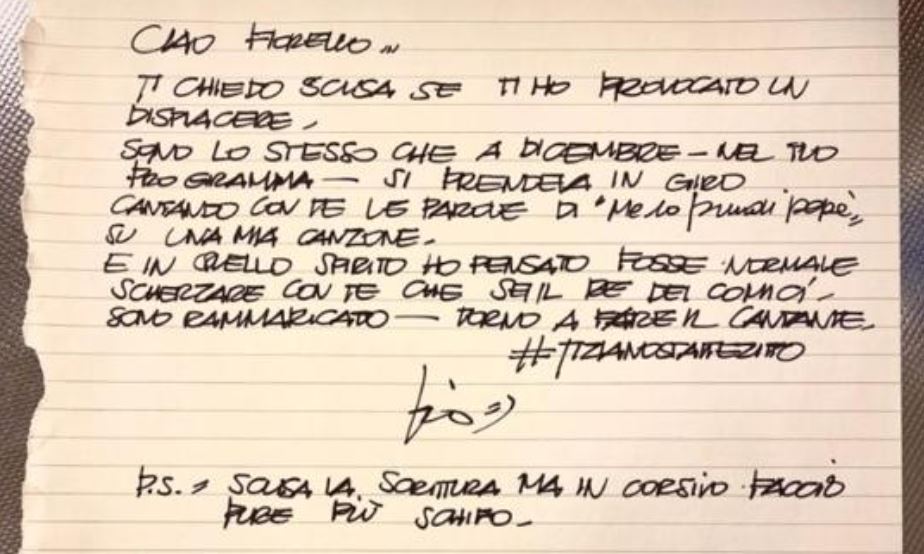 CIAO FIORELLO...
TI CHIEDO SCUSA SE TI HO PROVOCATO UN
DISPIACERE.
SONO LO STESSO CHE A DICEMBRE - NEL TUO
PROGRAMMA - SI PRENDEVA IN GIRO
CANTANDO CON TE LE PAROLE DI "Me lo prendi papè"
SU UNA MIA CANZONE.
E IN QUELLO SPIRITO HO PENSATO FOSSE NORMALE
SCHERZARE CON TE CHE SEI IL RE DEI COMICI.
SONO RAMMARICATO - TORNO A FARE IL CANTANTE.
#TIZIANOSTATTEZITTO
P.S. = SCUSA LA SCRITTURA MA IN CORSIVO FACCIO
PURE PIÙ SCHIFO.